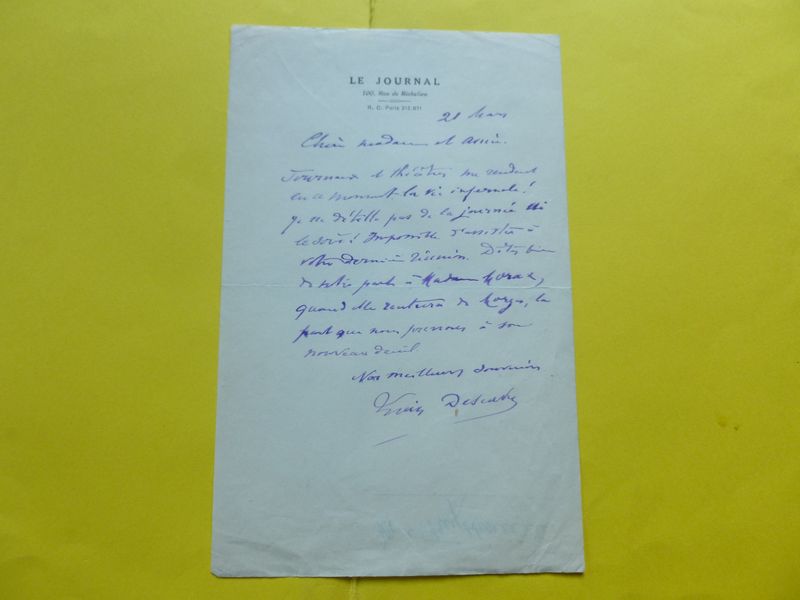 LE JOURNAL
100, Rue de Richelieu
R. C. Paris 313.971
21 Mars
Chère madame et amie,
Journaux et théâtres me rendent
en ce moment la vie infernale !
Je ne dételle pas de la journée ni
le soir ! Impossible d'assister à
votre dernière réunion. Dites bien
de notre part à Madame Morax,
quand elle rentrera de Morges, la
part que nous prenons à son
nouveau deuil.
Nos meilleurs souvenirs.
Lucien Descaves